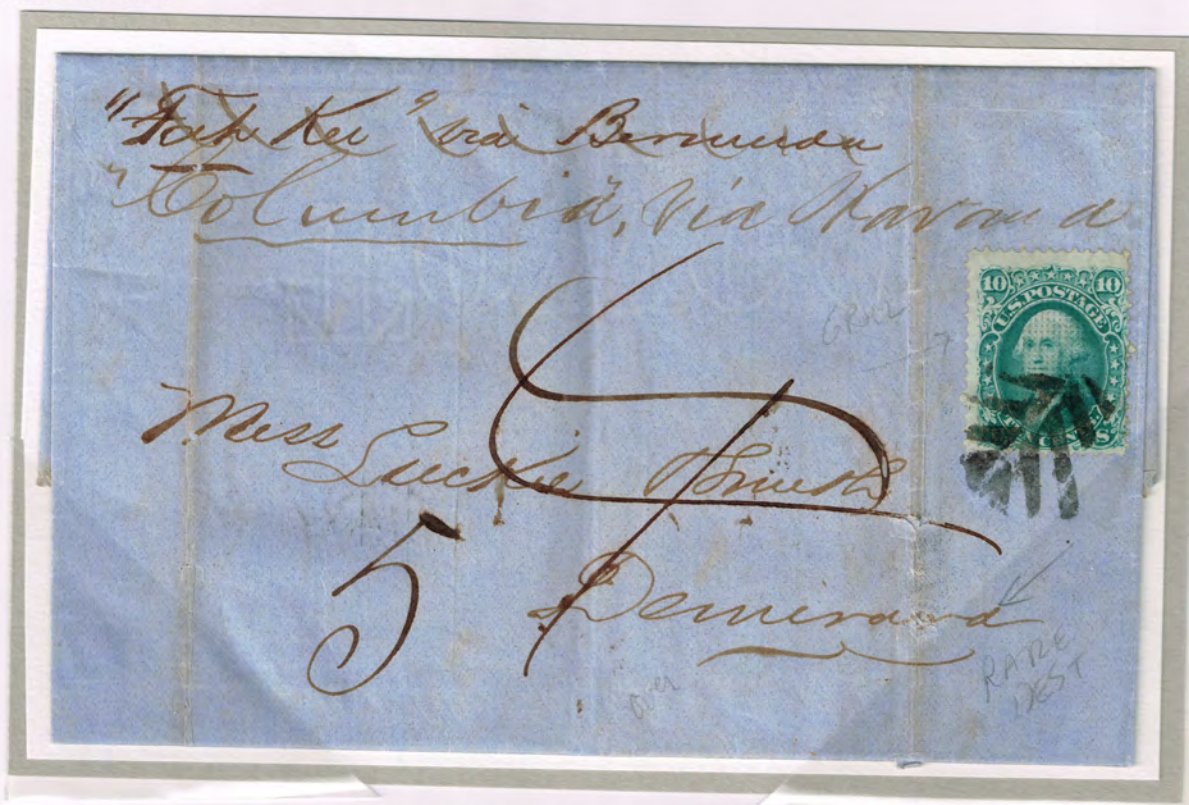 "Fah Kee" via Bermuda
"Columbia", Via Havana
10 10
U.S. POSTAGE
GRILL
Mess
Luckie
Demerara
5
4
over
RARE
DEST